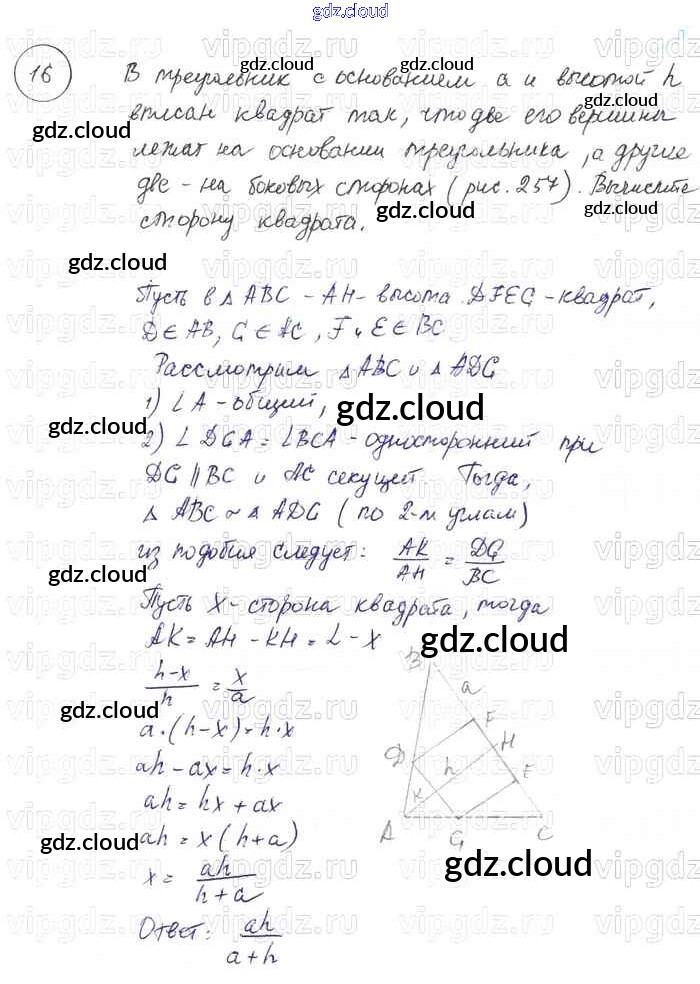 gdz.cloud
16
В треугольник с основанием a и высотой h
вписан квадрат так, что две его вершины
лежат на основании треугольника, а другие
две - на боковых сторонах (рис. 257). Вычислите
сторону квадрата.
Пусть в △ ABC - AH - высота. DFEG - квадрат,
D ∈ AB, G ∈ AC, F и E ∈ BC
Рассмотрим △ ABC и △ ADG
1) ∠ A - общий,
2) ∠ DGA = ∠ BCA - односторонний при
DG ∥ BC и AC секущей. Тогда,
△ ABC ~ △ ADG (по 2-м углам)
из подобия следует: AK/AH = DG/BC
Пусть X - сторона квадрата, тогда
AK = AH - KH = L - X
(h-x)/h = x/a
a·(h-x) = h·x
ah - ax = h·x
ah = hx + ax
ah = x(h+a)
x = ah/(h+a)
Ответ: ah/(a+h)
B
a
F
H
D
h
E
K
A
G
C
gdz.cloud
gdz.cloud
gdz.cloud
gdz.cloud
gdz.cloud
gdz.cloud
gdz.cloud
gdz.cloud
gdz.cloud
gdz.cloud
gdz.cloud
gdz.cloud
gdz.cloud
vipgdz.ru